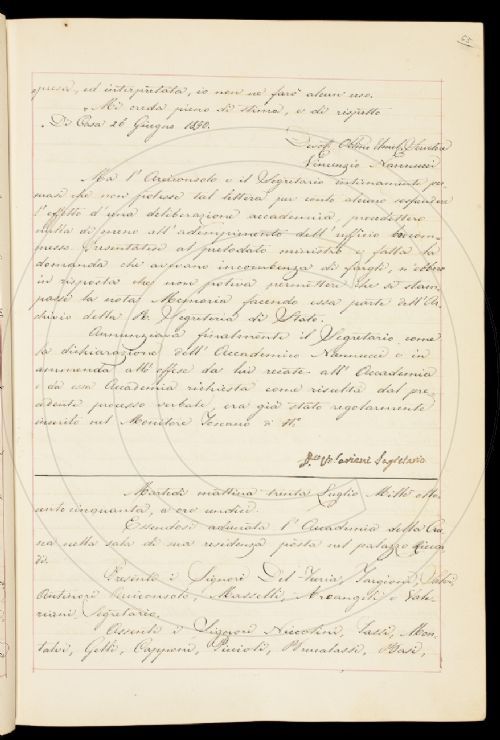 65
presa, ed interpretata, io non ne farò alcun uso.
Mi creda pieno di stima, e di rispetto
Di Casa 26 Giugno 1850.
Devot. Obbmo Servitore
Vincenzio Nannucci
Ma l'Arciconsolo e il Segretario intimamente per,
suasi che non potesse tal lettera per conto alcuno sospendere
l'effetto d'una deliberazione accademica procedettero
nulla di meno all'adempimento dell'ufficio loro com,
messo. Presentatisi al prelodato ministro e fatta la
domanda che avevano incombenza di fargli, n'ebbero
in risposta che non poteva permettere che si stam,
passe la nota Memoria facendo essa parte dell'Ar,
chivio della R. Segreteria di Stato.
Annunziava finalmente il Segretario come
la dichiarazione dell'Accademico Nannucci e in
ammenda all'offese da lui recate all'Accademia
e da essa Accademia richiesta come risulta dal pre,
cedente processo verbale, era già stato regolarmente
inserito nel Monitore Toscano di N.
Valeriani Segretario
Martedì mattina trenta Luglio Mille otto,
cento cinquanta, a ore undici.
Essendosi adunata l'Accademia della Cru,
sca nella sala di sua residenza posta nel palazzo Riccar,
di.
Presenti i Signori Del-Furia, Targioni,
Antinori Arciconsolo, Masselli, Arcangeli e Vale,
riani Segretario,
Assenti i Signori Niccolini, Tassi, Mon,
talvi, Gelli, Capponi, Piccioli, Brunatassi, Basi,